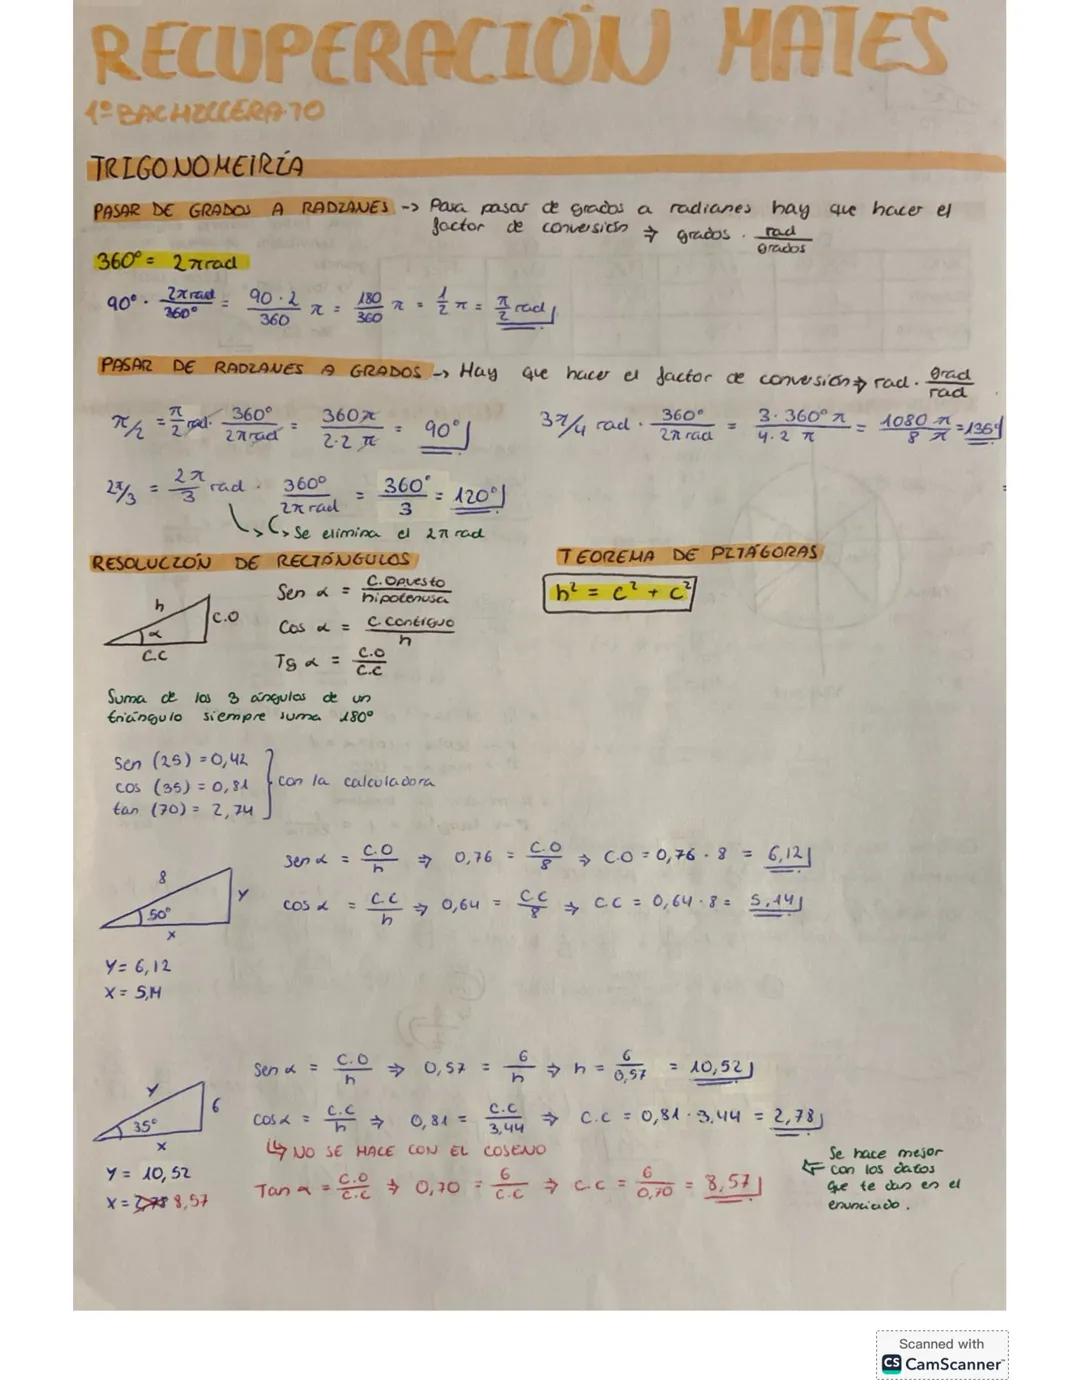 RECUPERACIÓN MATES
1º BACHILLERATO
TRIGONOMETRÍA
PASAR DE GRADOS A RADIANES -> Para pasar de grados a radianes hay que hacer el
factor de conversión ⇒ grados · rad/grados
360º = 2π rad
90º · 2π rad/360º = 90·2/360 π = 180/360 π = 1/2 π = π/2 rad
PASAR DE RADIANES A GRADOS -> Hay que hacer el factor de conversión ⇒ rad · grad/rad
π/2 = π/2 rad · 360º/2π rad = 360π/2·2π = 90º
3π/4 rad · 360º/2π rad = 3·360º π/4·2 π = 1080 π/8 π = 135º
2π/3 = 2π/3 rad · 360º/2π rad = 360º/3 = 120º
↳ Se elimina el 2π rad
RESOLUCIÓN DE RECTÁNGULOS
TEOREMA DE PITÁGORAS
h² = c² + c²
h
α
C.O
C.C
Sen α = C.Opuesto/hipotenusa
Cos α = C.contiguo/h
Tg α = C.O/C.C
Suma de los 3 ángulos de un
triángulo siempre suma 180º
Sen (25) = 0,42
cos (35) = 0,81
tan (70) = 2,74
con la calculadora
8
50º
y
x
sen α = C.O/h ⇒ 0,76 = C.O/8 ⇒ C.O = 0,76 · 8 = 6,12
cos α = C.C/h ⇒ 0,64 = C.C/8 ⇒ C.C = 0,64·8 = 5,14
Y = 6,12
X = 5,14
y
35º
6
x
Sen α = C.O/h ⇒ 0,57 = 6/h ⇒ h = 6/0,57 = 10,52
cos α = C.C/h ⇒ 0,81 = C.C/3,44 ⇒ C.C = 0,81·3,44 = 2,78
↳ NO SE HACE CON EL COSENO
Y = 10,52
X = 2,78 8,57
Tan α = C.O/C.C ⇒ 0,70 = 6/C.C ⇒ C.C = 6/0,70 = 8,57
Se hace mejor
con los datos
que te dan en el
enunciado.
Scanned with
CS CamScanner